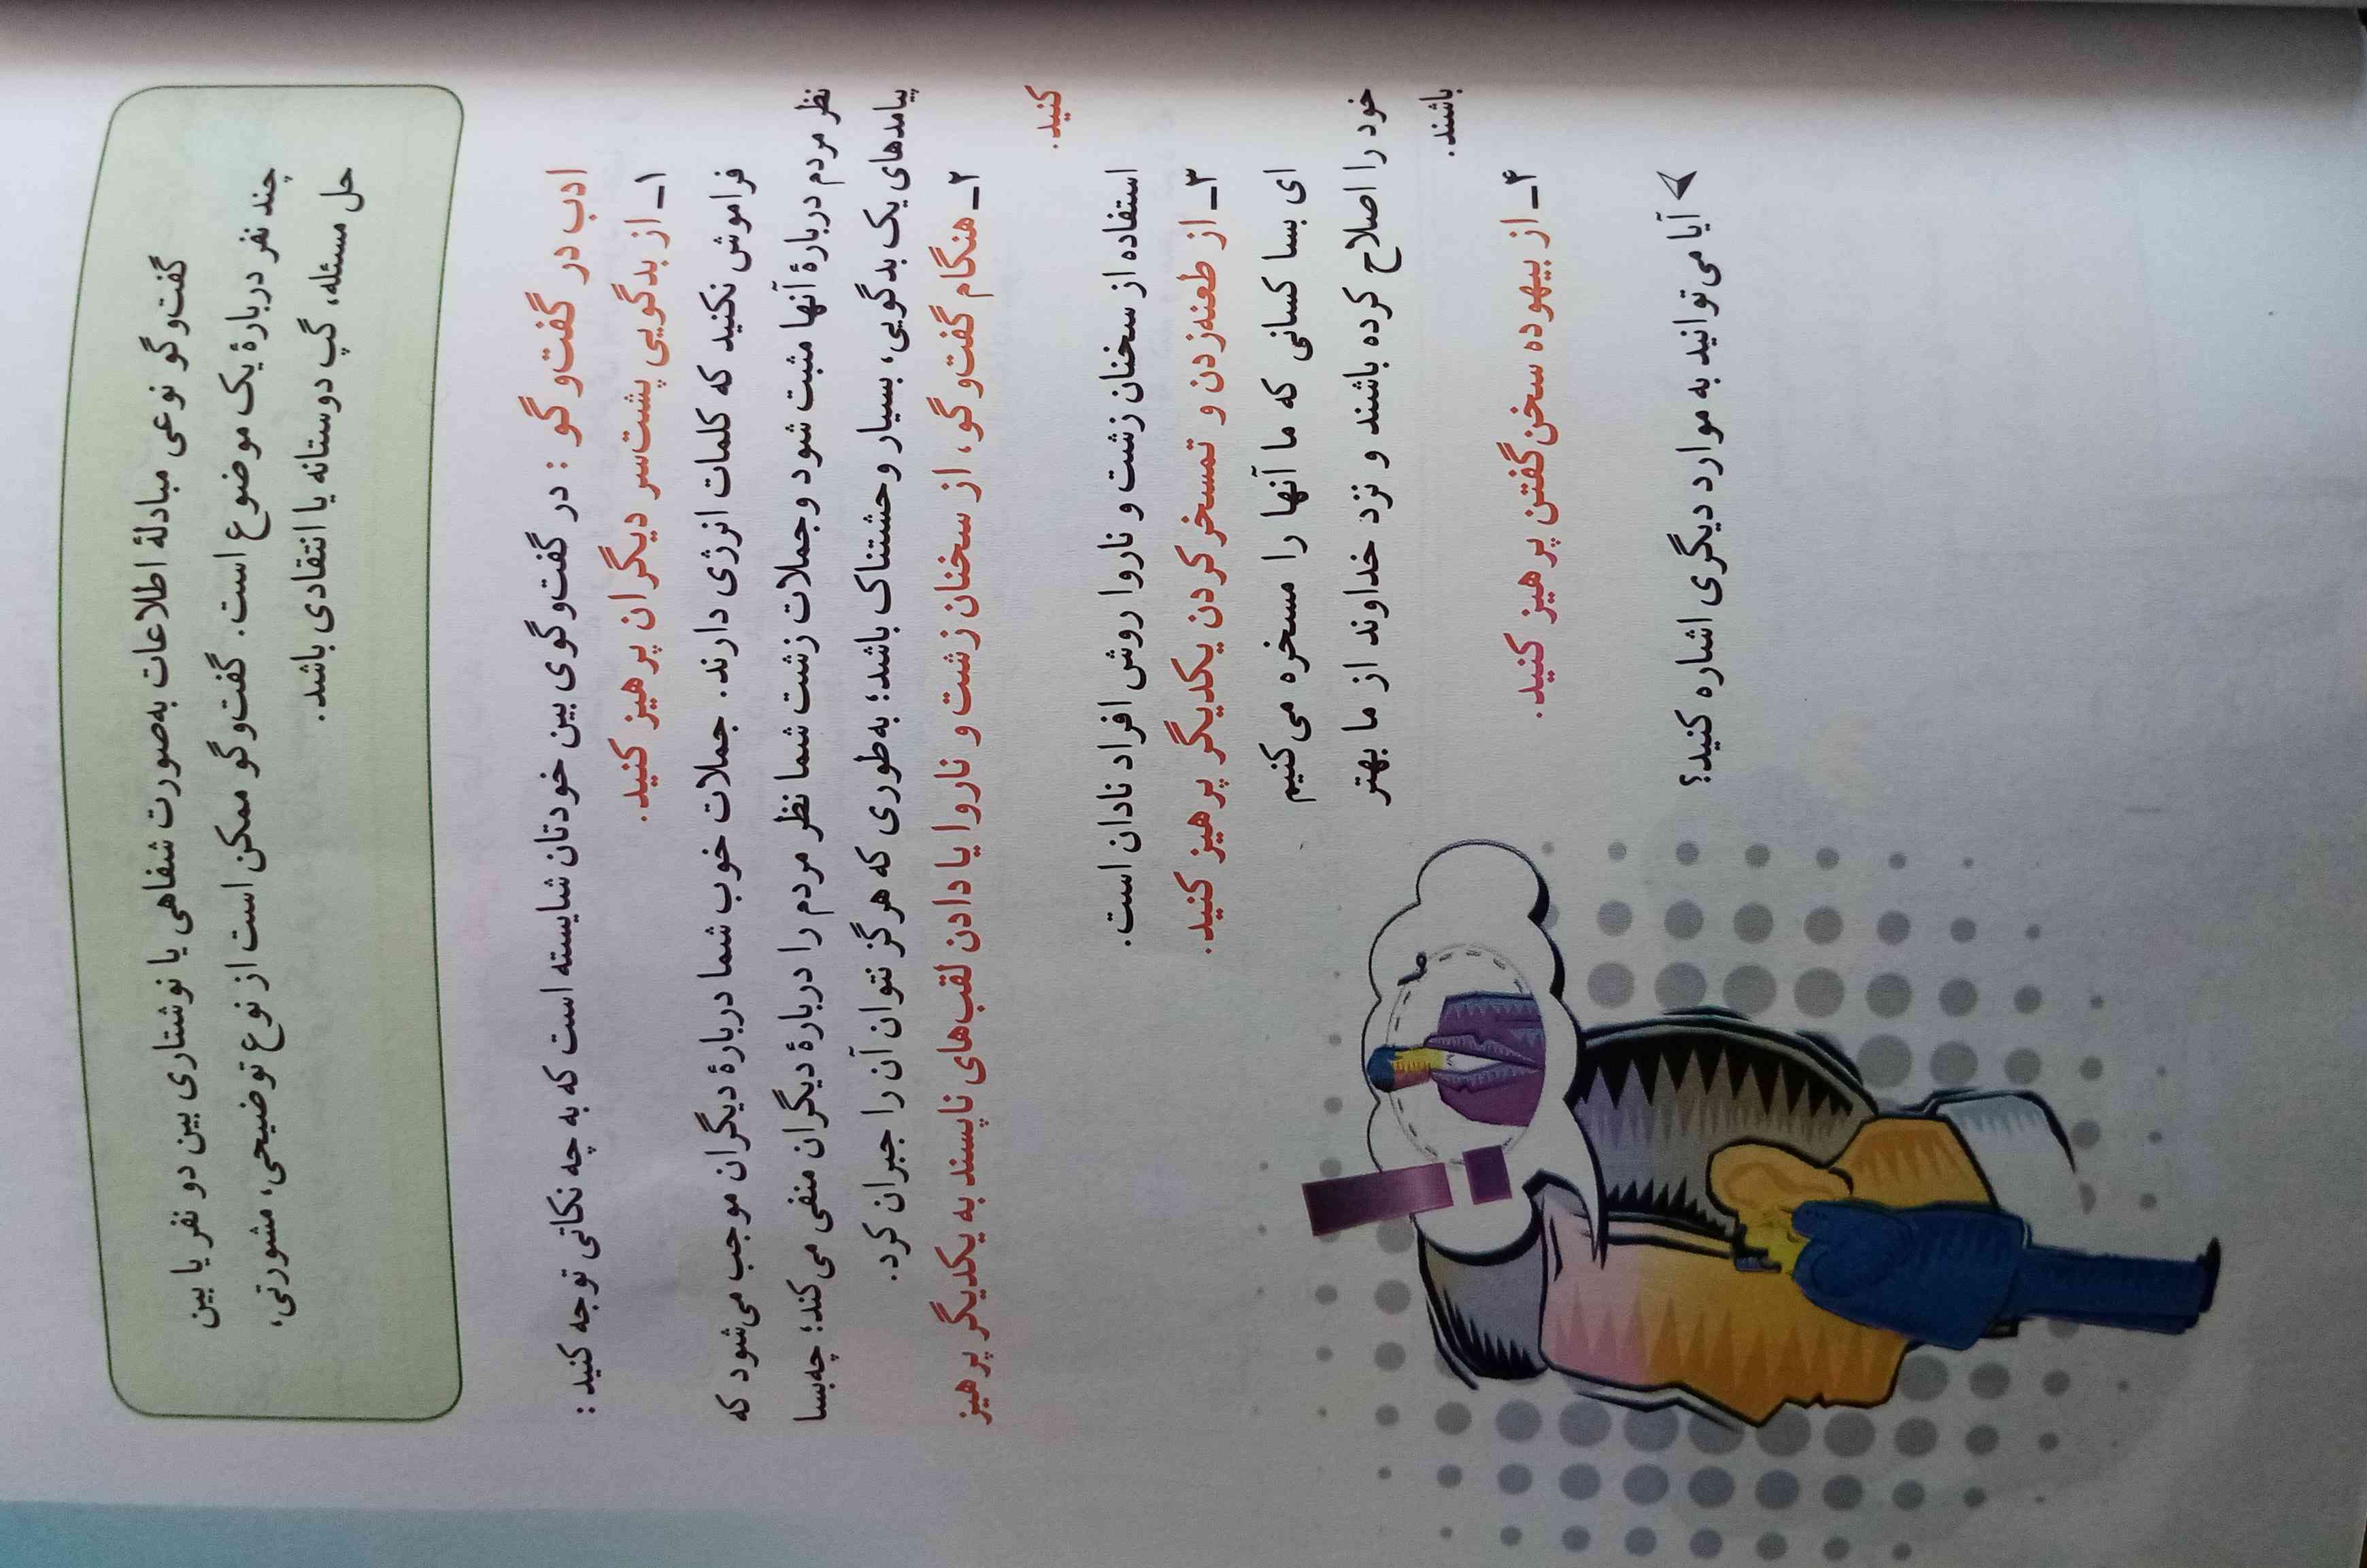 گفت‌وگو نوعی مبادلهٔ اطلاعات به‌صورت شفاهی یا نوشتاری بین دو نفر یا بین
چند نفر دربارهٔ یک موضوع است. گفت‌وگو ممکن است از نوع توضیحی، مشورتی،
حل مسئله، گپ دوستانه یا انتقادی باشد.
ادب در گفت‌وگو : در گفت‌وگوی بین خودتان شایسته است که به چه نکاتی توجه کنید :
۱ـ از بدگویی پشت‌سر دیگران پرهیز کنید.
فراموش نکنید که کلمات انرژی دارند. جملات خوب شما دربارهٔ دیگران موجب می‌شود که
نظر مردم دربارهٔ آنها مثبت شود و جملات زشت شما نظر مردم را دربارهٔ دیگران منفی می‌کند؛ چه‌بسا
پیامدهای یک بدگویی، بسیار وحشتناک باشد؛ به‌طوری که هرگز نتوان آن را جبران کرد.
۲ـ هنگام گفت‌وگو، از سخنان زشت و ناروا یا دادن لقب‌های ناپسند به یکدیگر پرهیز
کنید.
استفاده از سخنان زشت و ناروا روش افراد نادان است.
۳ـ از طعنه‌زدن و تمسخر کردن یکدیگر پرهیز کنید.
ای بسا کسانی که ما آنها را مسخره می‌کنیم
خود را اصلاح کرده باشند و نزد خداوند از ما بهتر
باشند.
۴ـ از بیهوده سخن‌گفتن پرهیز کنید.
آیا می‌توانید به موارد دیگری اشاره کنید؟